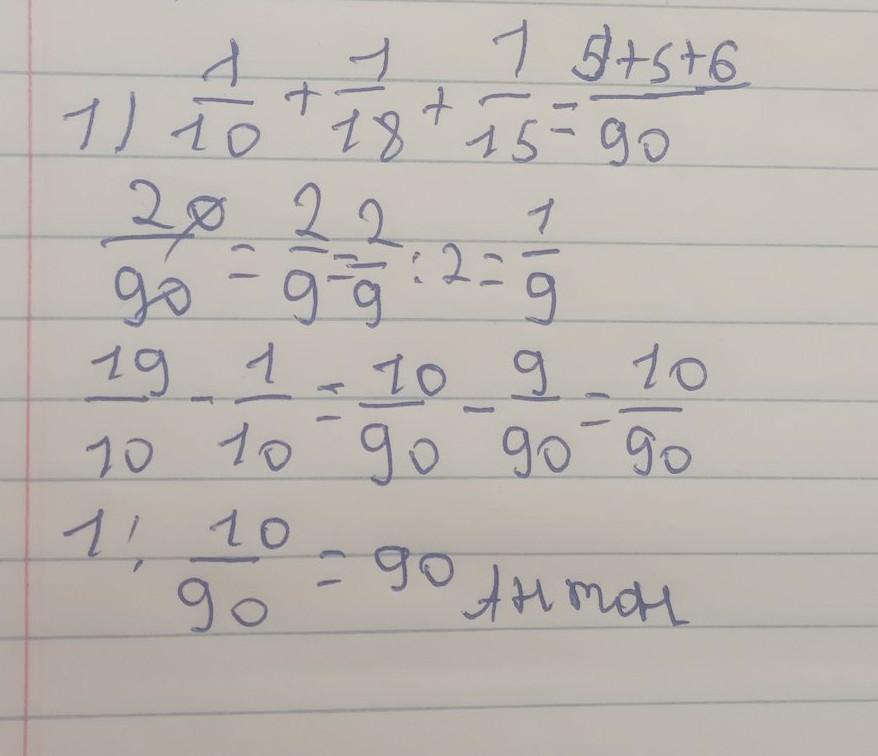 1) 1/10 + 1/18 + 1/15 = 5+5+6/90
20/90 = 2/9 = 2/9 : 2 = 1/9
19/10 - 1/10 = 10/90 - 9/90 = 10/90
1 : 10/90 = 90 Антон